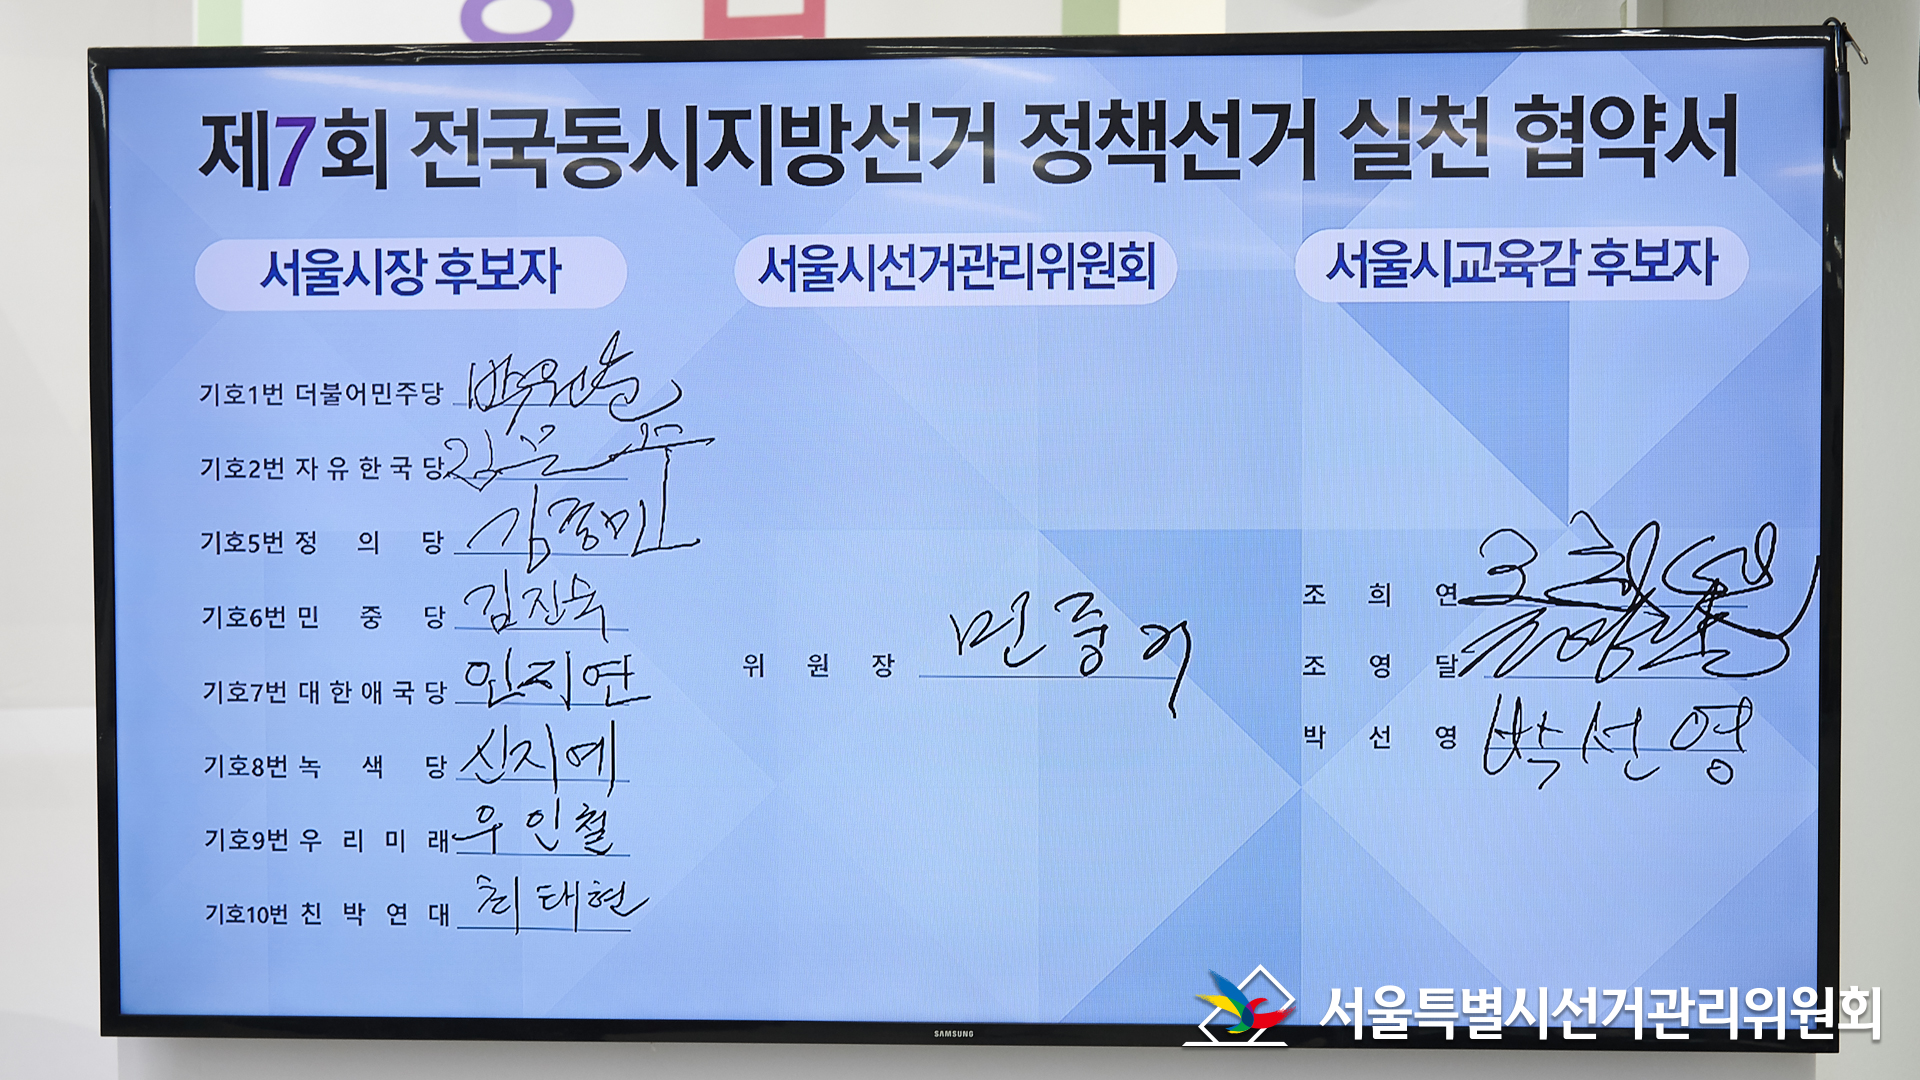 제7회 전국동시지방선거 정책선거 실천 협약서
서울시장 후보자
기호1번 더불어민주당 박원순
기호2번 자유한국당 김문수
기호5번 정의당 김종민
기호6번 민중당 김진숙
기호7번 대한애국당 인지연
기호8번 녹색당 신지예
기호9번 우리미래 우인철
기호10번 친박연대 최태현
서울시선거관리위원회
위원장 민중기
서울시교육감 후보자
조희연
조영달
박선영 박선영
SAMSUNG
서울특별시선거관리위원회